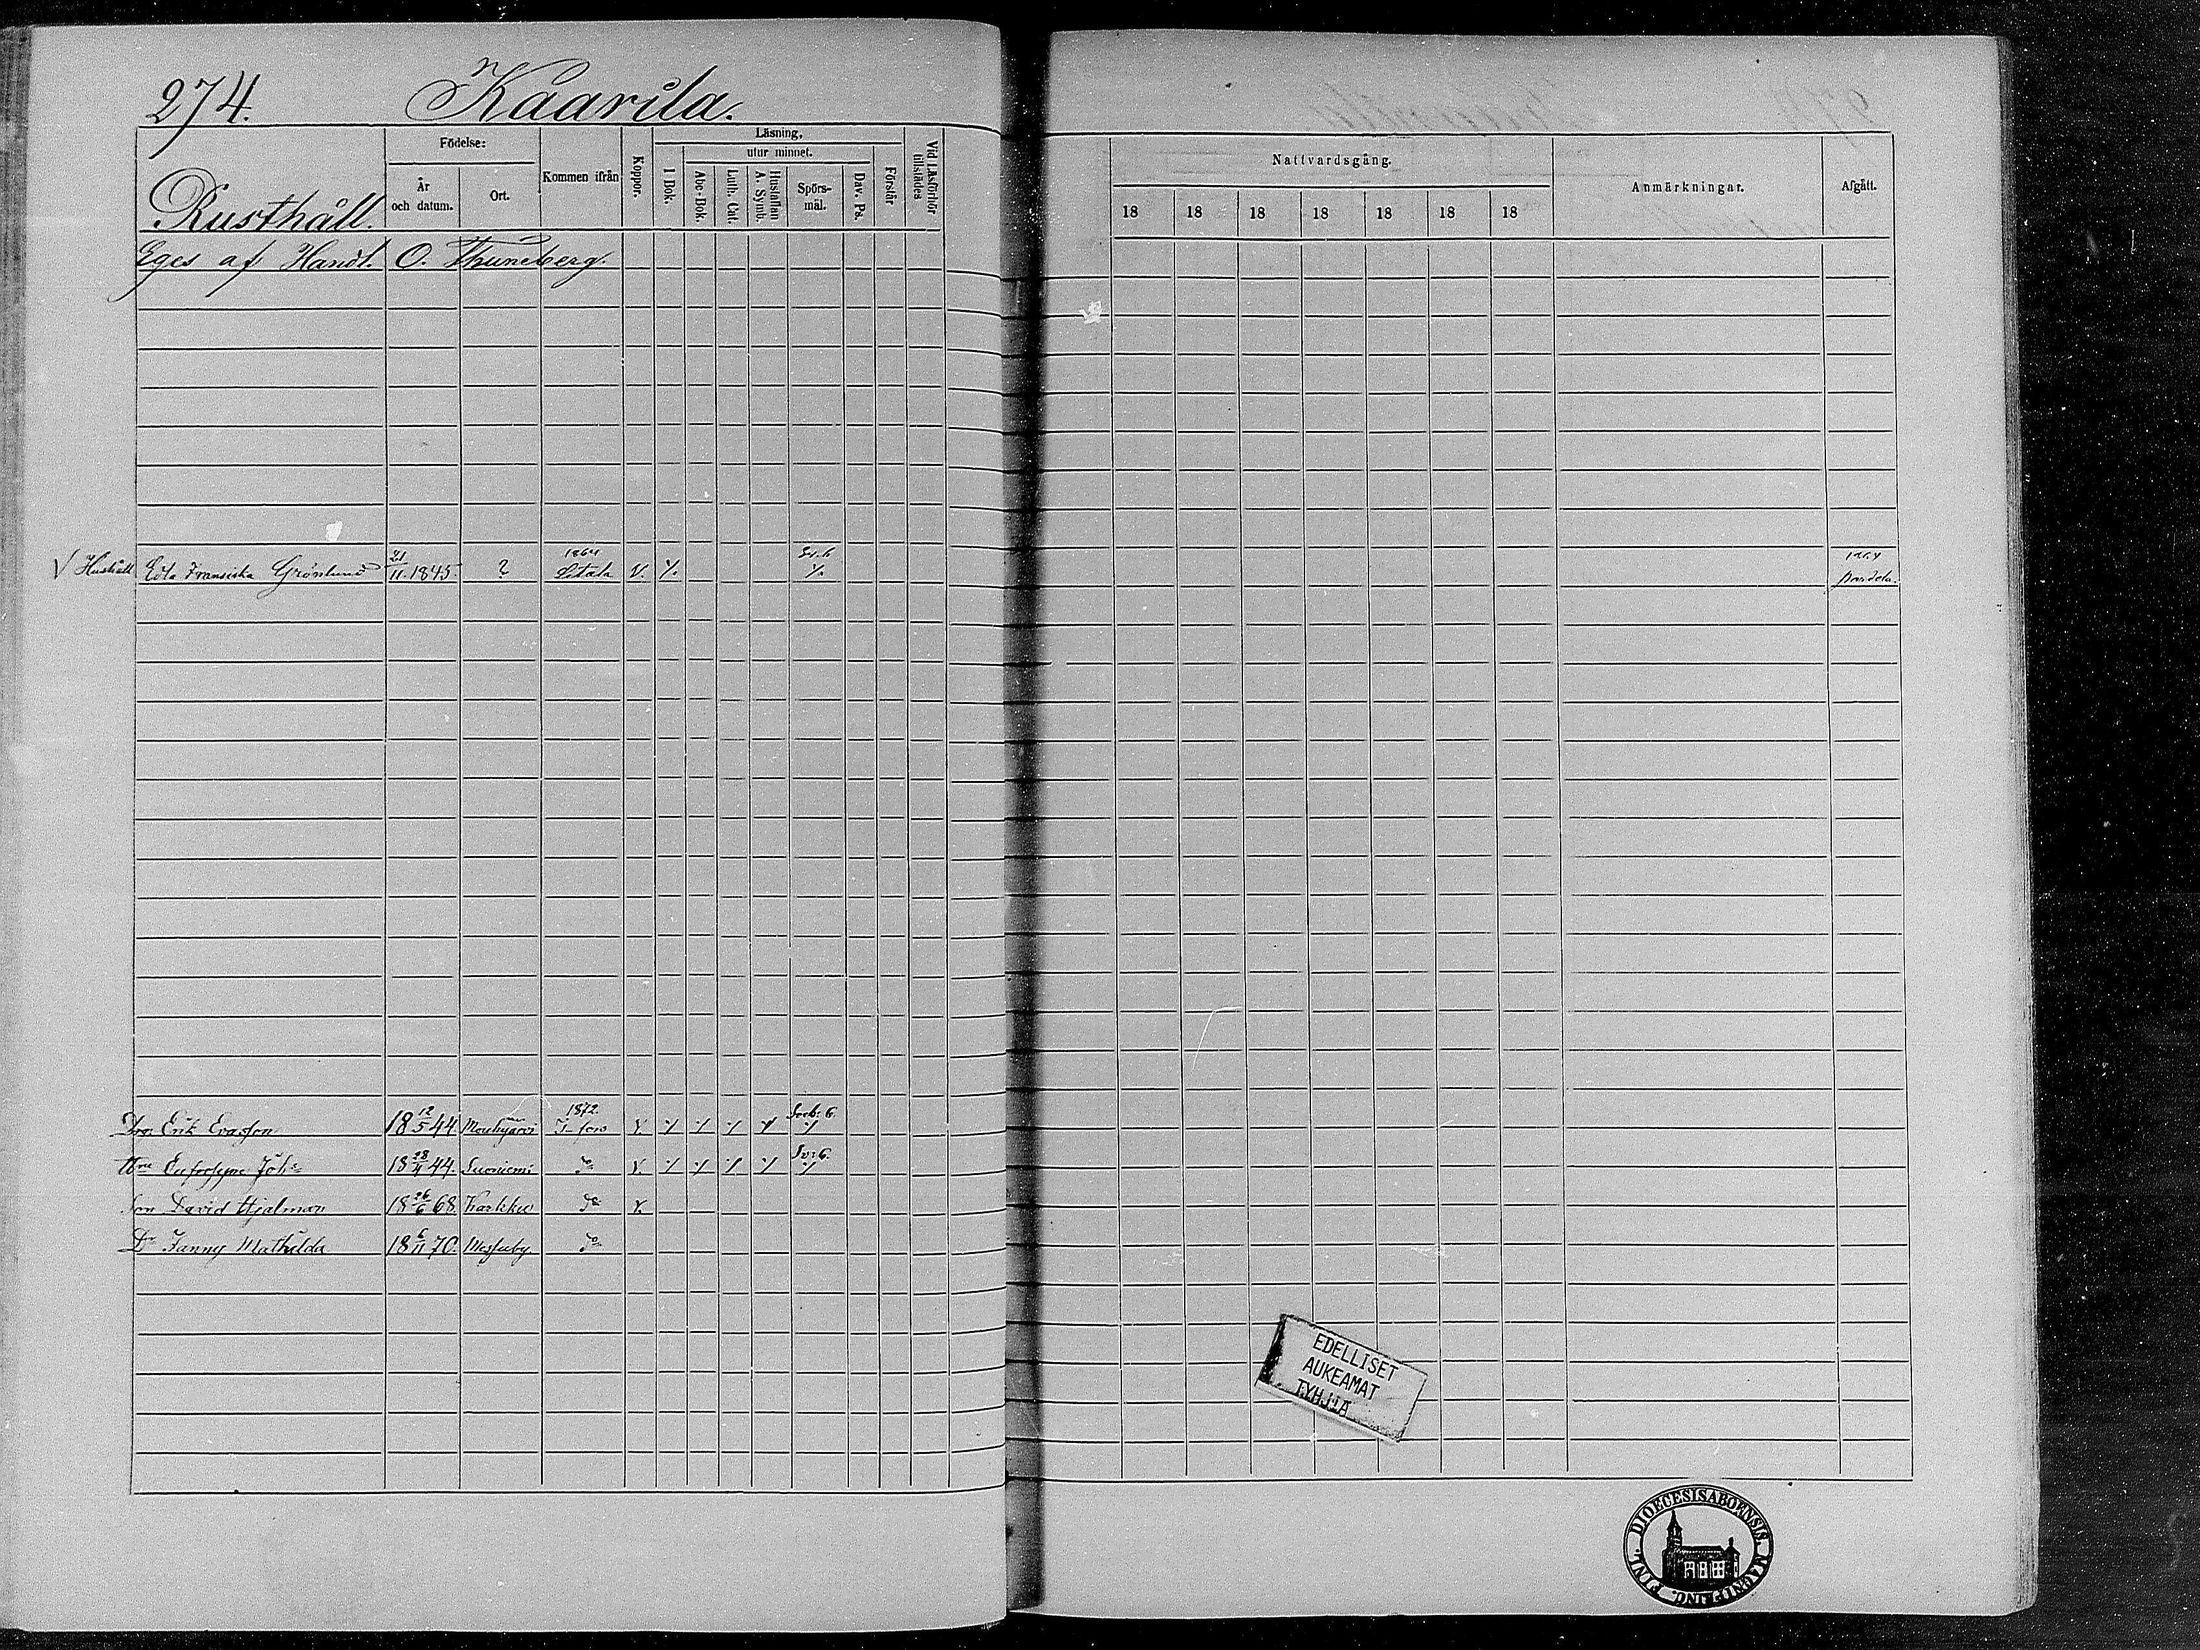 274. Kaarila.
Rusthåll.
Födelse:
År och datum.
Ort.
Kommen ifrån
Koppor.
Läsning,
I Bok.
utur minnet.
Abc-Bok.
Luth. Cat.
Hustaflan A. Symb.
Spörs-mål.
Dav. Ps.
Förstår
Vid Läsförhör tillstädes
Nattvardsgång.
18 18 18 18 18 18 18
Anmärkningar.
Afgått.
Eges af Handl. O. Thuneberg.
1864
Edla Fransiska Grönlund 21/11 1845. ? V.
Dr. Erik Erasson 18 12/5 44 Mouhijärvi 1872. T-fors V.
18 28/11 44. Suoniemi Do V.
Son David Hjalmar 18 26/6 68. Karkku Do V.
Dr Fanny Mathilda 18 6/11 70. Messuby Do
EDELLISET
AUKEAMAT
TYHJIÄ
FINL. DIOECESIS ABOENSIS. MAGNI PRINC.